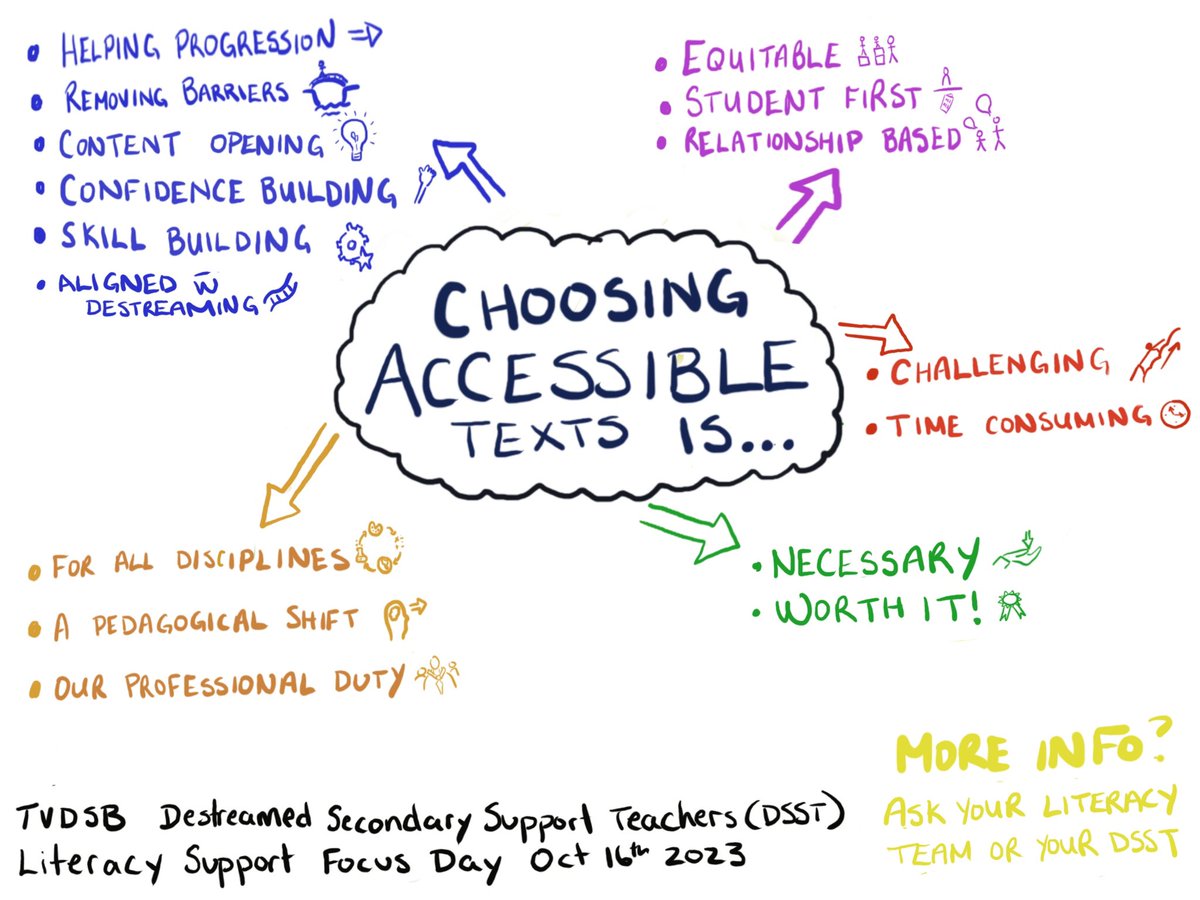 CHOOSING
ACCESSIBLE
TEXTS IS...
• HELPING PROGRESSION
• REMOVING BARRIERS
• CONTENT OPENING
• CONFIDENCE BUILDING
• SKILL BUILDING
• ALIGNED W̄
DESTREAMING
• EQUITABLE
• STUDENT FIRST
• RELATIONSHIP BASED
• CHALLENGING
• TIME CONSUMING
• NECESSARY
• WORTH IT!
• FOR ALL DISCIPLINES
• A PEDAGOGICAL SHIFT
• OUR PROFESSIONAL DUTY
MORE INFO?
ASK YOUR LITERACY
TEAM OR YOUR DSST
TVDSB Destreamed Secondary Support Teachers (DSST)
Literacy Support Focus Day Oct 16th 2023